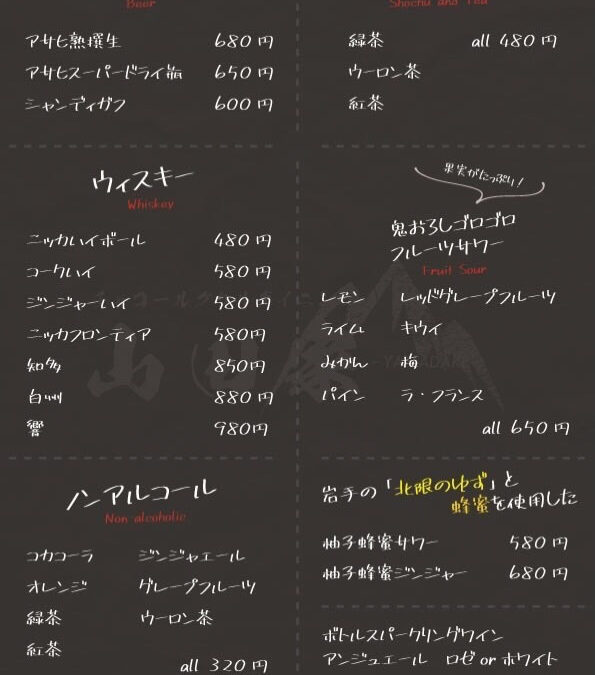 Beer
アサヒ熟撰生 680円
アサヒスーパードライ瓶 650円
シャンディガフ 600円
ウィスキー
Whiskey
ニッカハイボール 480円
コークハイ 580円
ジンジャーハイ 580円
ニッカフロンティア 580円
知多 850円
白州 880円
響 980円
ノンアルコール
Non alcoholic
コカコーラ ジンジャエール
オレンジ グレープフルーツ
緑茶 ウーロン茶
紅茶
all 320円
Shochu and Tea
緑茶 all 480円
ウーロン茶
紅茶
果実がたっぷり!
鬼おろしゴロゴロ
フルーツサワー
Fruit Sour
レモン レッドグレープフルーツ
ライム キウイ
みかん 梅
パイン ラ・フランス
all 650円
岩手の「北限のゆず」と
蜂蜜を使用した
柚子蜂蜜サワー 580円
柚子蜂蜜ジンジャー 680円
ボトルスパークリングワイン
アンジュエール ロゼ or ホワイト